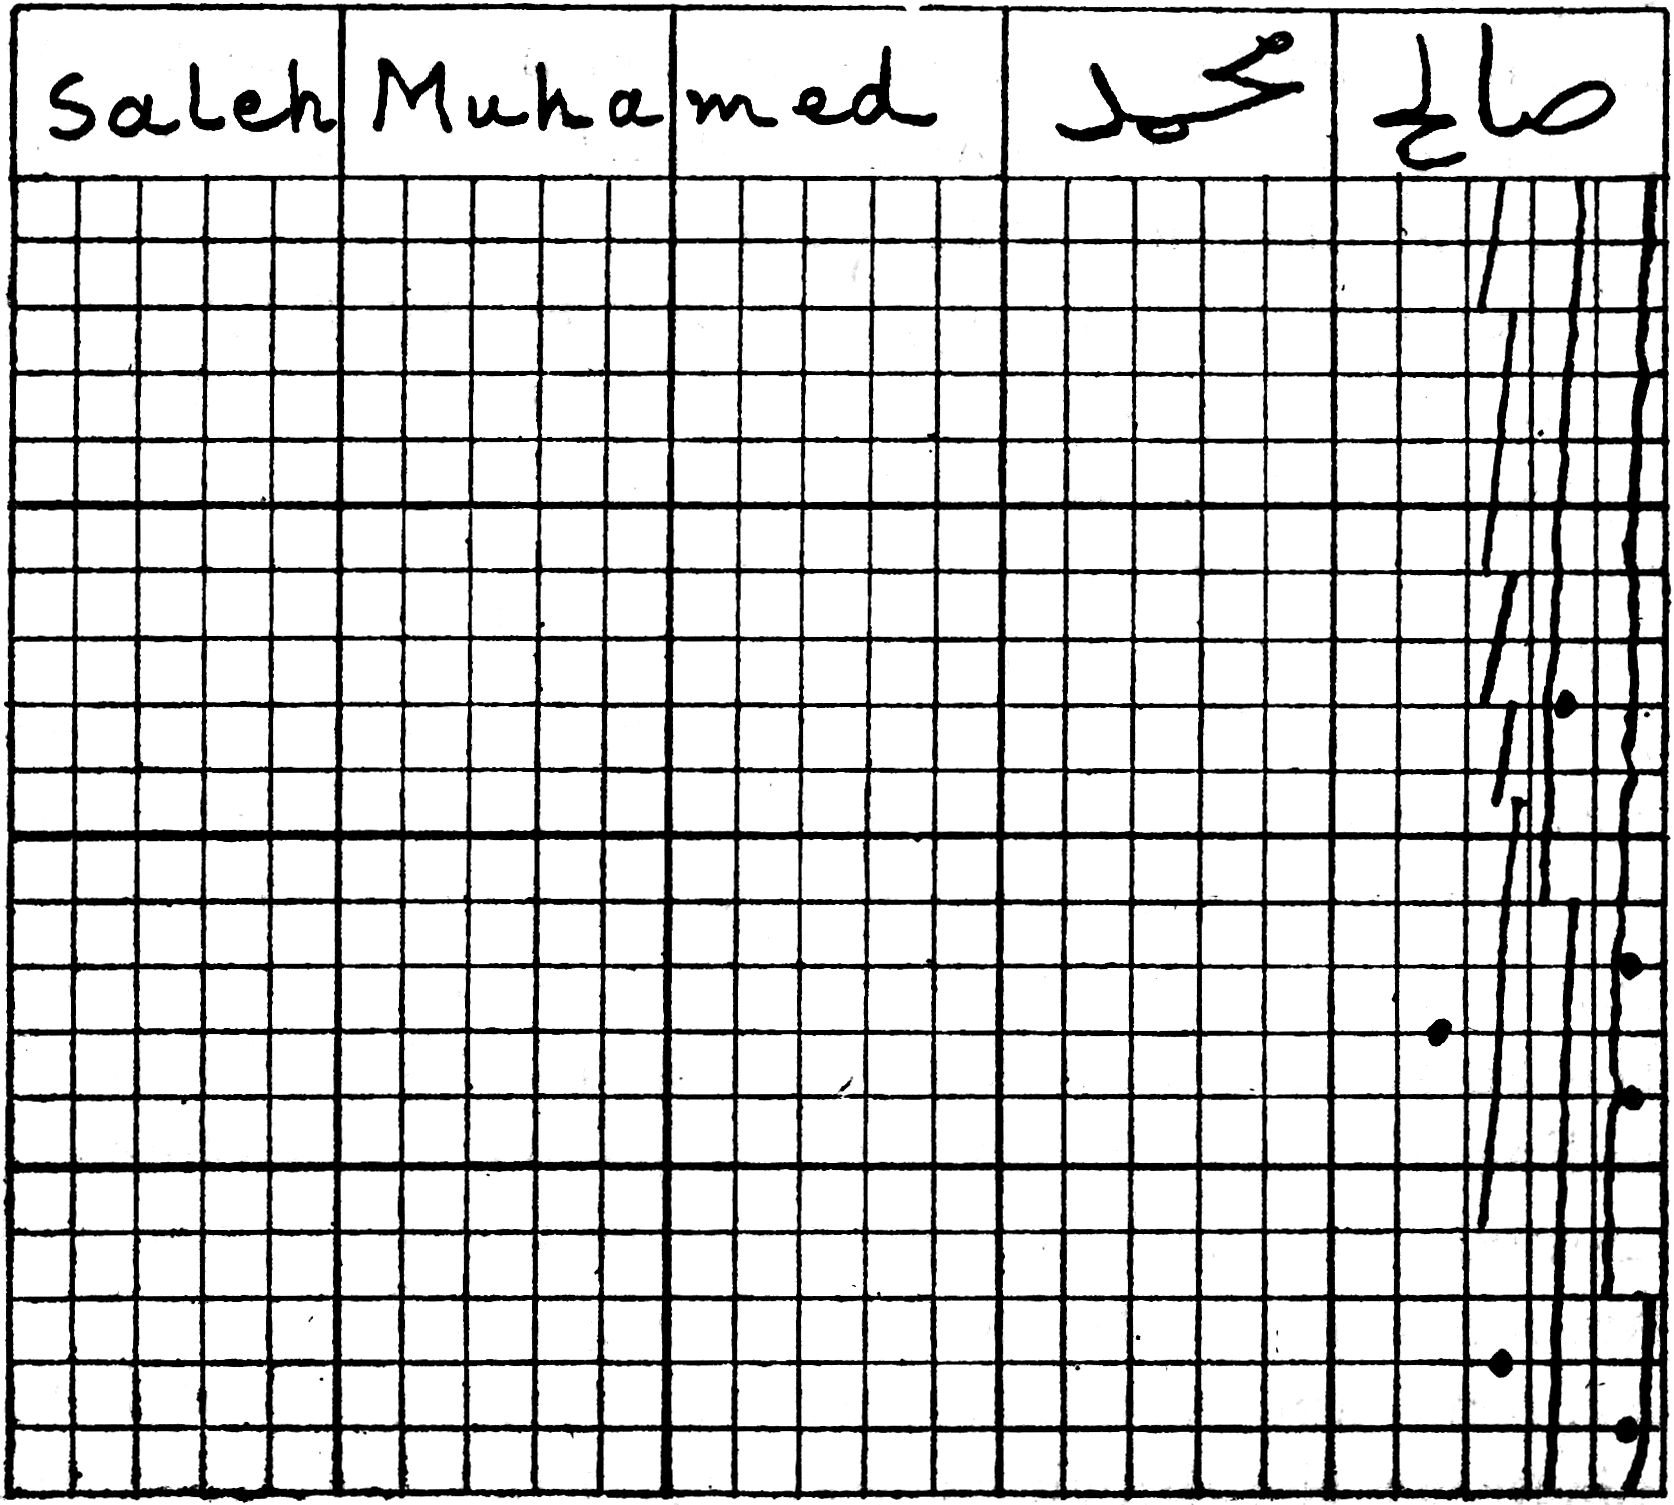 Saleh Muhamed محمد صالح